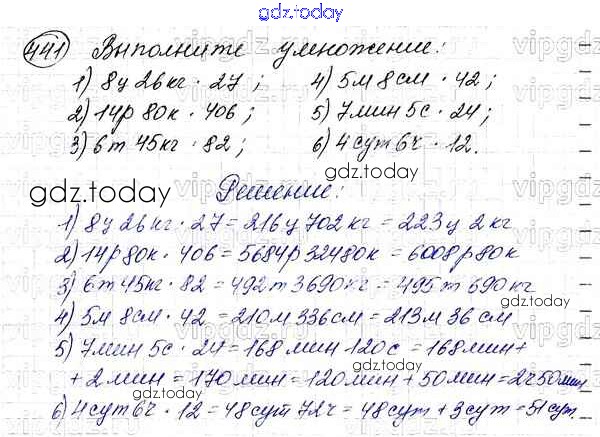 gdz.today
441 Выполните умножение:
1) 8ц 26кг · 27; 4) 5м 8см · 42;
2) 14р 80к · 406; 5) 7мин 5с · 24;
3) 6т 45кг · 82; 6) 4сут 6ч · 12.
gdz.today Решение:
1) 8ц 26кг · 27 = 216ц 702кг = 223ц 2кг
2) 14р 80к · 406 = 5684р 32480к = 6008р 80к
3) 6т 45кг · 82 = 492т 3690кг = 495т 690кг
gdz.today
4) 5м 8см · 42 = 210м 336см = 213м 36см
5) 7мин 5с · 24 = 168мин 120с = 168мин +
+ 2мин = 170мин = 120мин + 50мин = 2ч 50мин
6) 4сут 6ч · 12 = 48сут 72ч = 48сут + 3сут = 51сут.
gdz.today
gdz.today